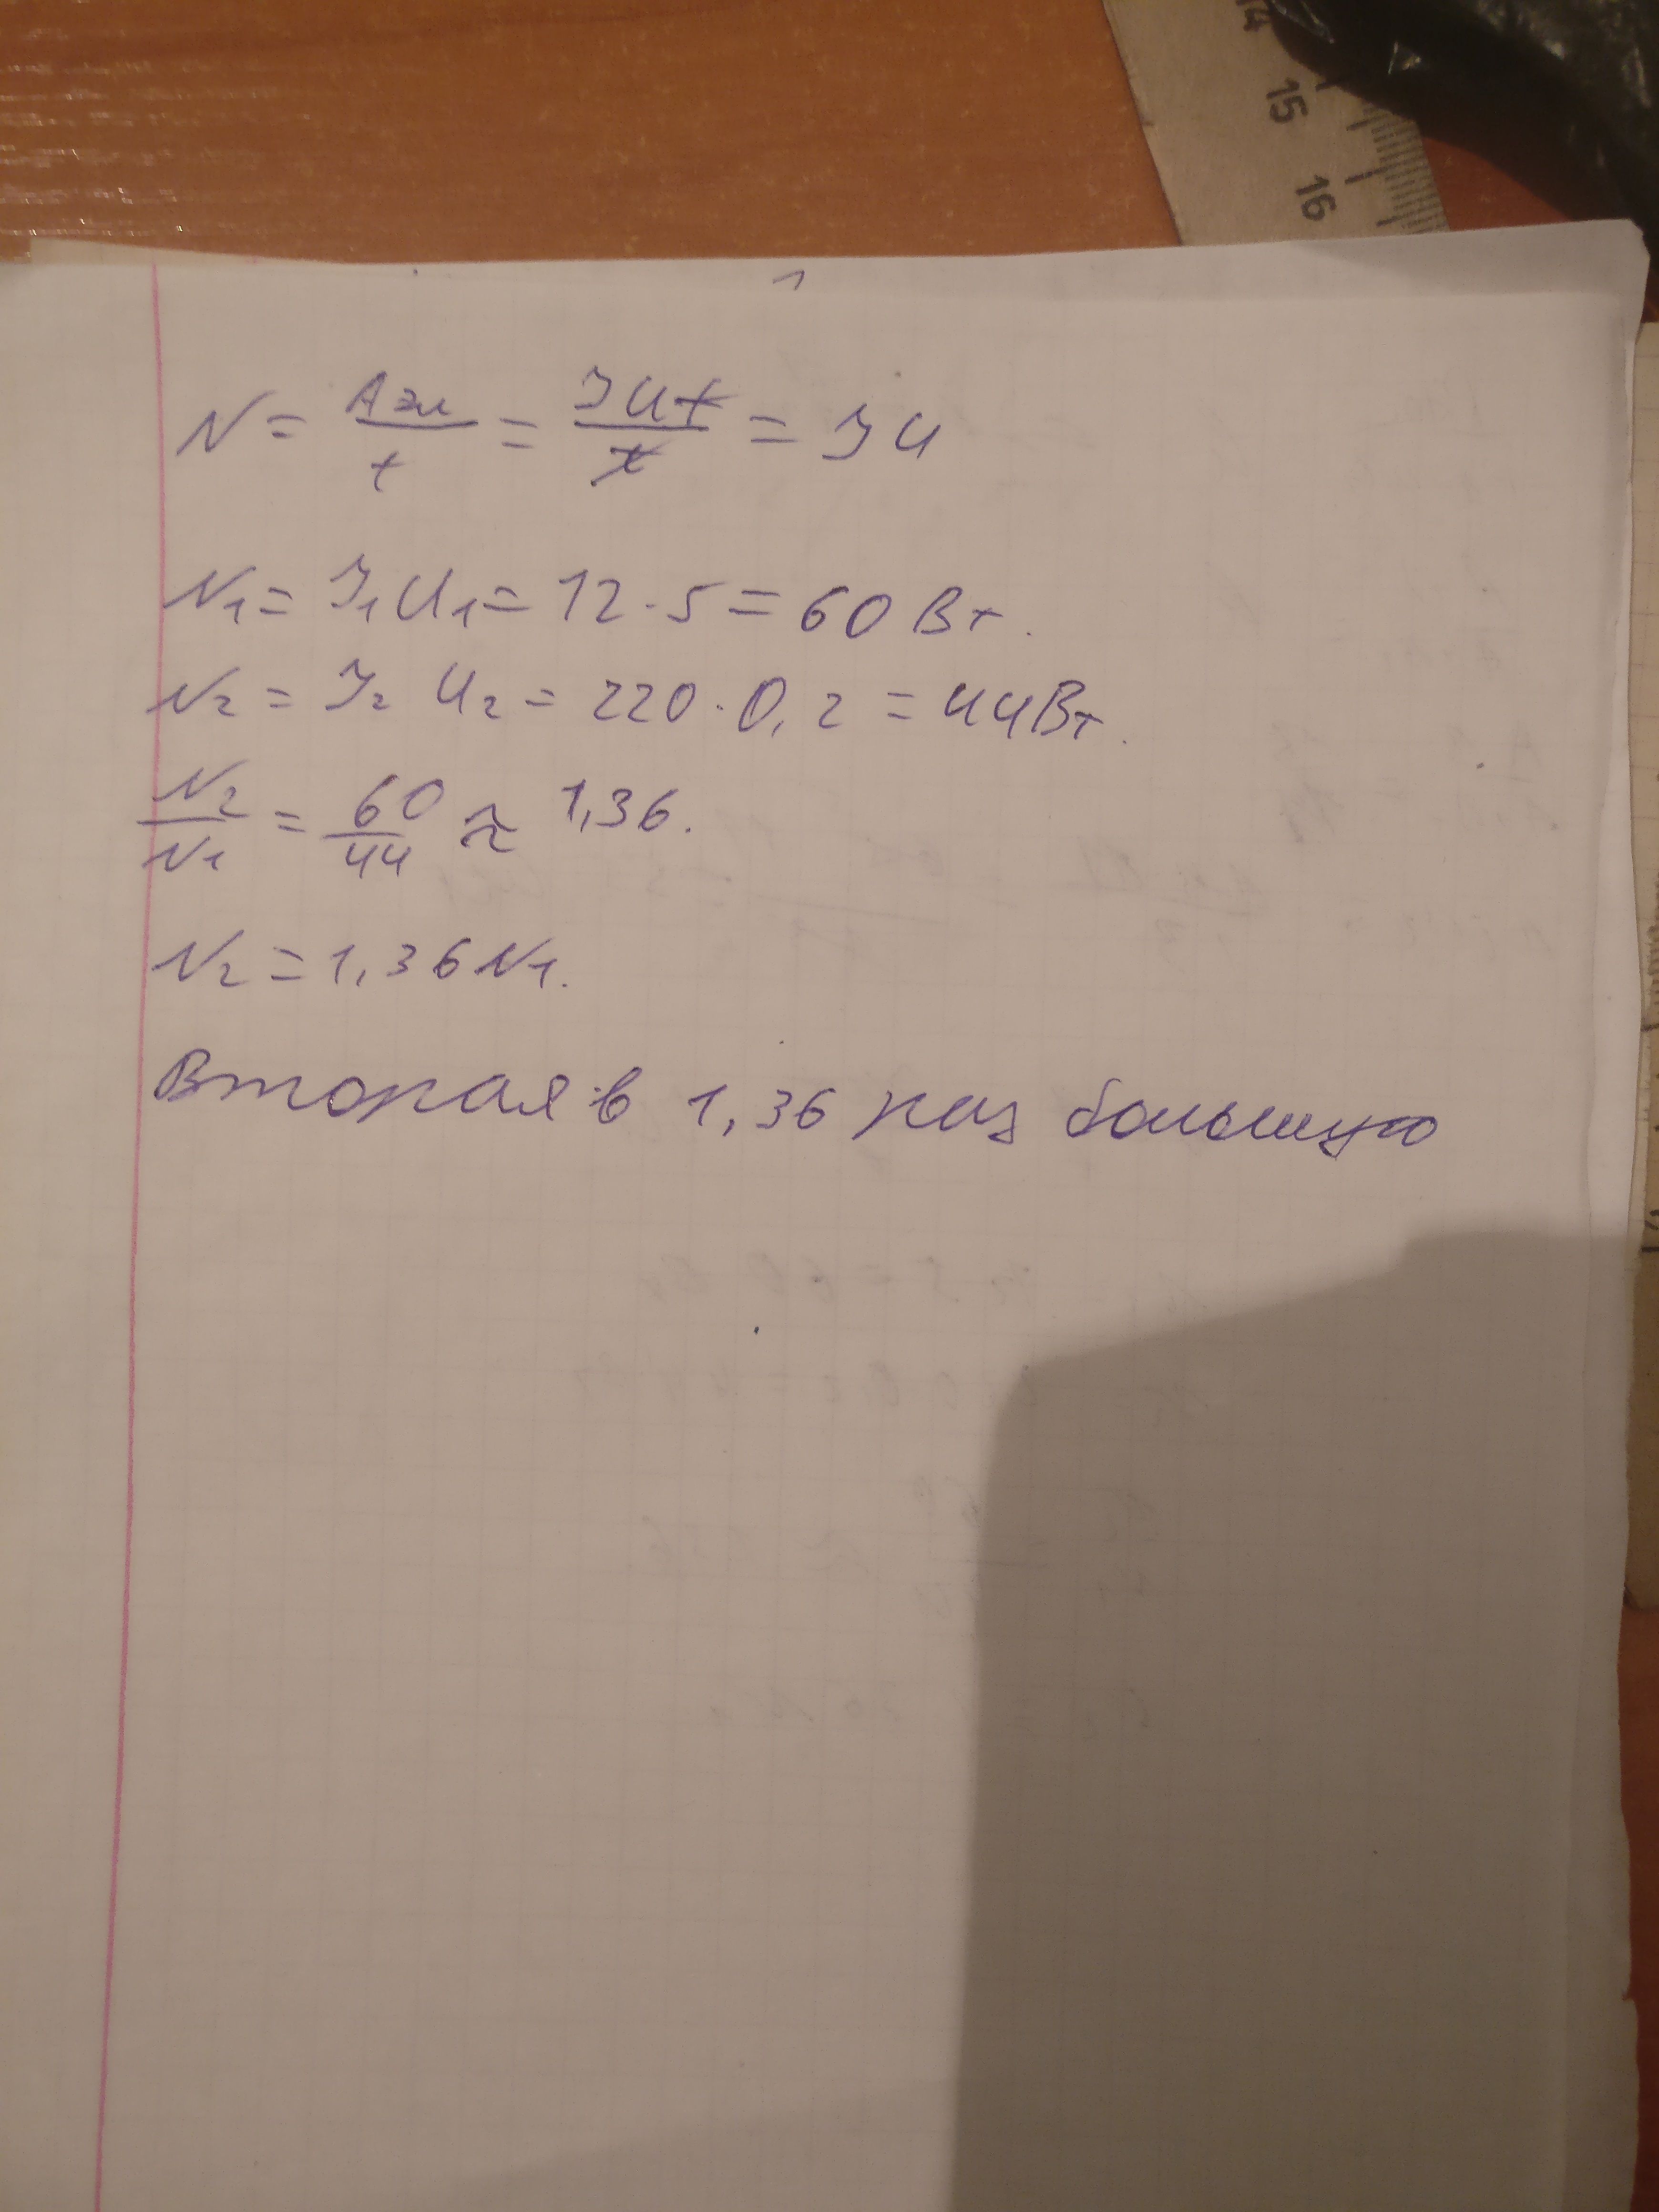 14
15
16
N = Aэл/t = IUt/t = IU
N1 = I1 U1 = 12 · 5 = 60 Вт.
N2 = I2 U2 = 220 · 0,2 = 44 Вт.
N2/N1 = 60/44 ≈ 1,36.
N2 = 1,36 N1.
Вторая в 1,36 раз большую